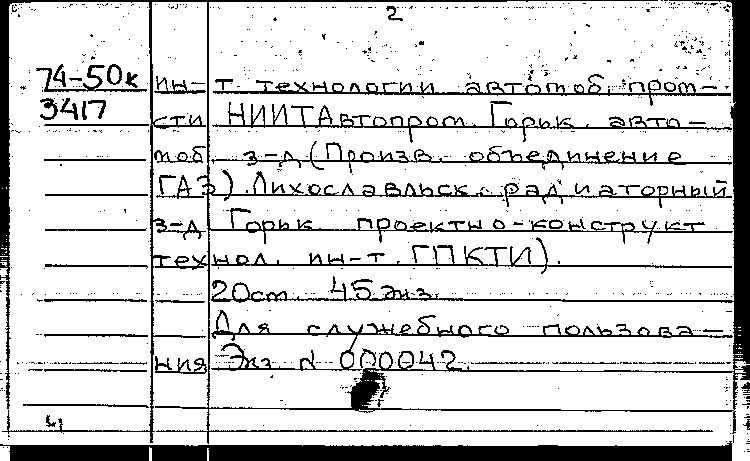 2
74-50к ин-т технологии автомоб. пром-
3417 сти НИИТАвтопром. Горьк. авто-
моб. з-д (Произв. объединение
ГАЗ). Лихославльск. радиаторный
з-д Горьк. проектно-конструкт
технол. ин-т. ГПКТИ).
20ст. 45 экз.
Для служебного пользова-
ния Экз N 000042.